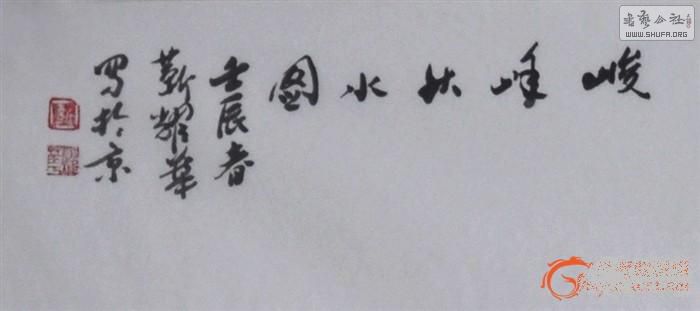 峻峰秋水图
壬辰春
靳耀华
写于京
书艺公社
WWW.SHUFA.ORG